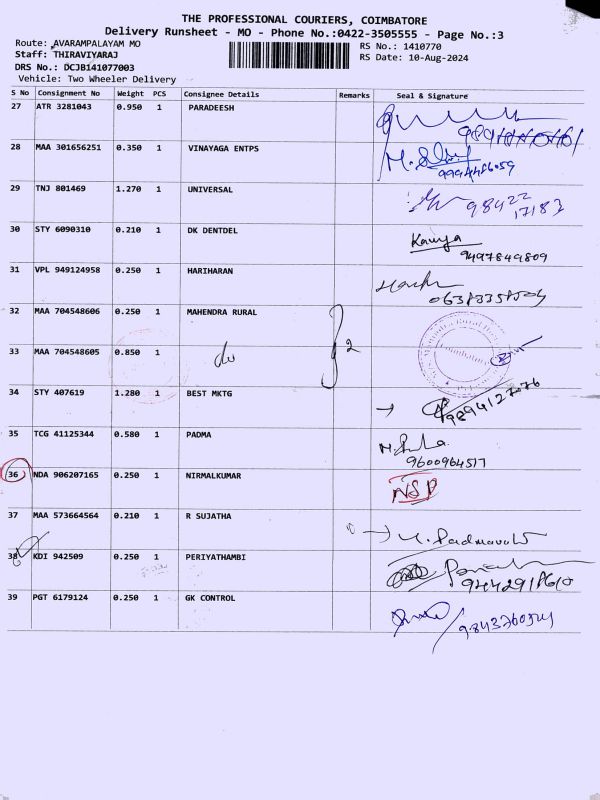 THE PROFESSIONAL COURIERS, COIMBATORE
Delivery Runsheet - MO - Phone No.:0422-3505555 - Page No.:3
Route: AVARAMPALAYAM MO
Staff: THIRAVIYARAJ
DRS No.: DCJB141077003
Vehicle: Two Wheeler Delivery
RS No.: 1410770
RS Date: 10-Aug-2024
S No Consignment No Weight PCS Consignee Details Remarks Seal & Signature
27 ATR 3281043 0.950 1 PARADEESH
28 MAA 301656251 0.350 1 VINAYAGA ENTPS
29 TNJ 801469 1.270 1 UNIVERSAL 98422
17183
30 STY 6090310 0.210 1 DK DENTDEL Kaviya
9497849809
31 VPL 949124958 0.250 1 HARIHARAN
32 MAA 704548606 0.250 1 MAHENDRA RURAL
33 MAA 704548605 0.850 1 do 2
34 STY 407619 1.280 1 BEST MKTG 9894127076
35 TCG 41125344 0.580 1 PADMA
9600964517
36 NDA 906207165 0.250 1 NIRMALKUMAR NSP
37 MAA 573664564 0.210 1 R SUJATHA
38 KDI 942509 0.250 1 PERIYATHAMBI
39 PGT 6179124 0.250 1 GK CONTROL